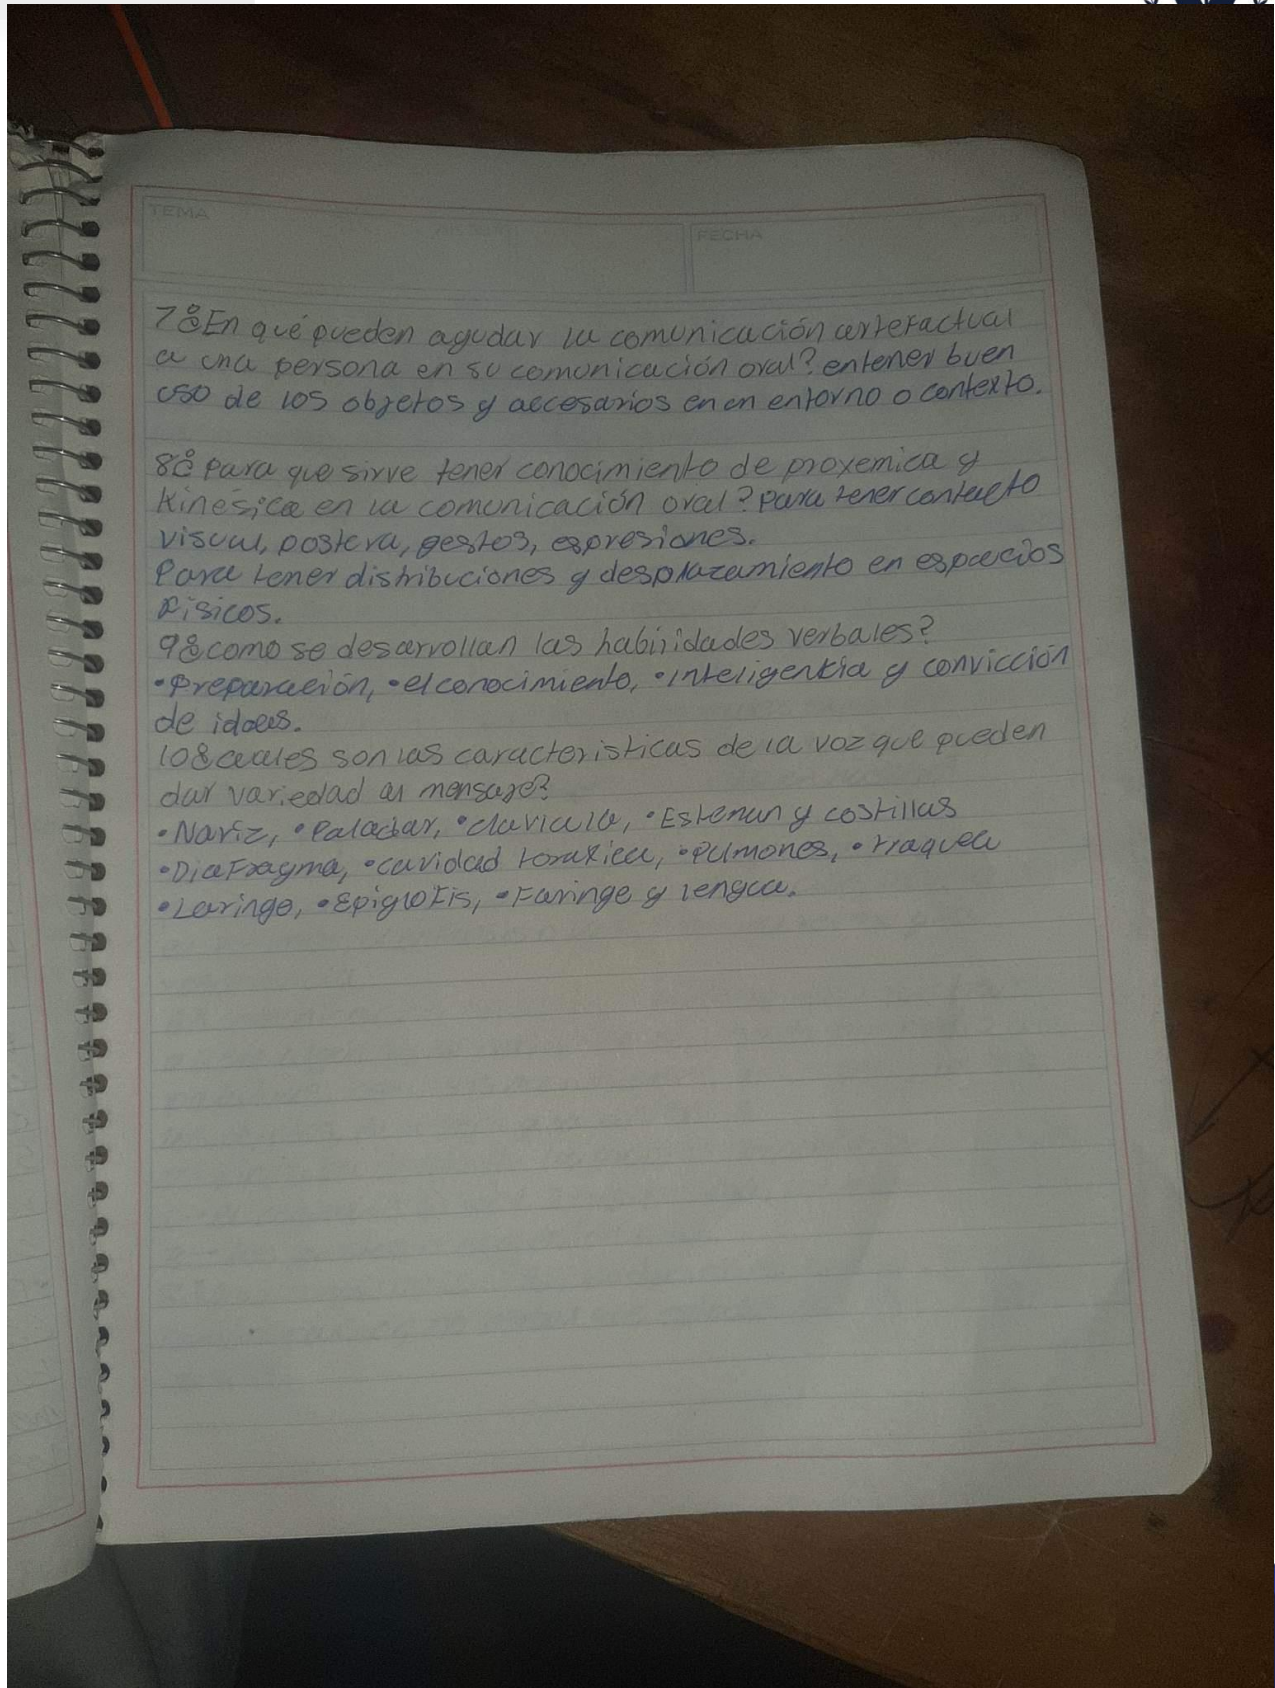 TEMA
FECHA
7¿En qué pueden ayudar la comunicación artefactual
a una persona en su comunicación oral? en tener buen
uso de los objetos y accesarios en un entorno o contexto.
8¿ Para que sirve tener conocimiento de proxemica y
Kinésica en la comunicación oral? Para tener contacto
visual, postura, gestos, espresiones.
Para tener distribuciones y desplazamiento en espacios
Fisicos.
9¿como se desarrollan las habilidades verbales?
•Preparación, •el conocimiento, •Inteligencia y convicción
de ideas.
10¿cuales son las caracteristicas de la voz que pueden
dar variedad al mensaje?
•Nariz, •Paladar, •clavicula, •Esternun y costillas
•Diafragma, •cavidad toraxica, •Pulmones, •traquea
•Laringe, •Epiglotis, •Faringe y lengua.